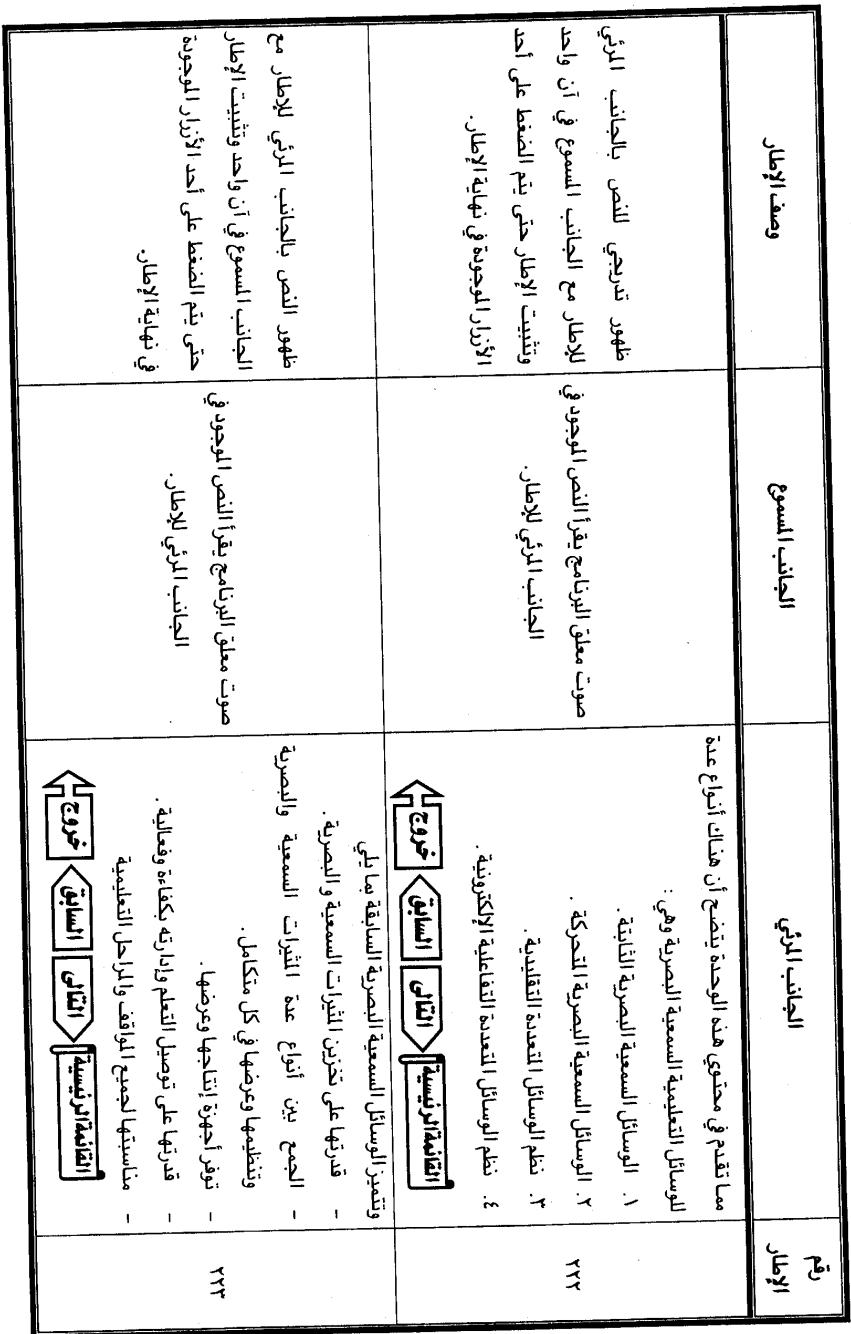 رقم
الإطار
الجانب المرئي
الجانب المسموع
وصف الإطار
٢٢٢
مما تقدم في محتوي هذه الوحدة يتضح أن هناك أنواع عدة
للوسائل التعليمية السمعية البصرية وهي :
١. الوسائل السمعية البصرية الثابتة .
٢. الوسائل السمعية البصرية المتحركة .
٣. نظم الوسائل المتعددة التقليدية .
٤. نظم الوسائل المتعددة التفاعلية الإلكترونية .
القائمة الرئيسية
التالى
السابق
خروج
صوت معلق البرنامج يقرأ النص الموجود في
الجانب المرئي للإطار.
ظهور تدريجي للنص بالجانب المرئي
للإطار مع الجانب المسموع في آن واحد
وتثبيت الإطار حتى يتم الضغط على أحد
الأزرار الموجودة في نهاية الإطار.
٢٢٣
وتتميز الوسائل السمعية البصرية السابقة بما يلي
- قدرتها على تخزين المثيرات السمعية والبصرية .
- الجمع بين أنواع عدة المثيرات السمعية والبصرية
وتنظيمها وعرضها في كل متكامل .
- توفر أجهزة إنتاجها وعرضها .
- قدرتها على توصيل التعلم وإدارته بكفاءة وفعالية .
- مناسبتها لجميع المواقف والمراحل التعليمية
القائمة الرئيسية
التالى
السابق
خروج
صوت معلق البرنامج يقرأ النص الموجود في
الجانب المرئي للإطار.
ظهور النص بالجانب المرئي للإطار مع
الجانب المسموع في آن واحد وتثبيت الإطار
حتى يتم الضغط على أحد الأزرار الموجودة
في نهاية الإطار.